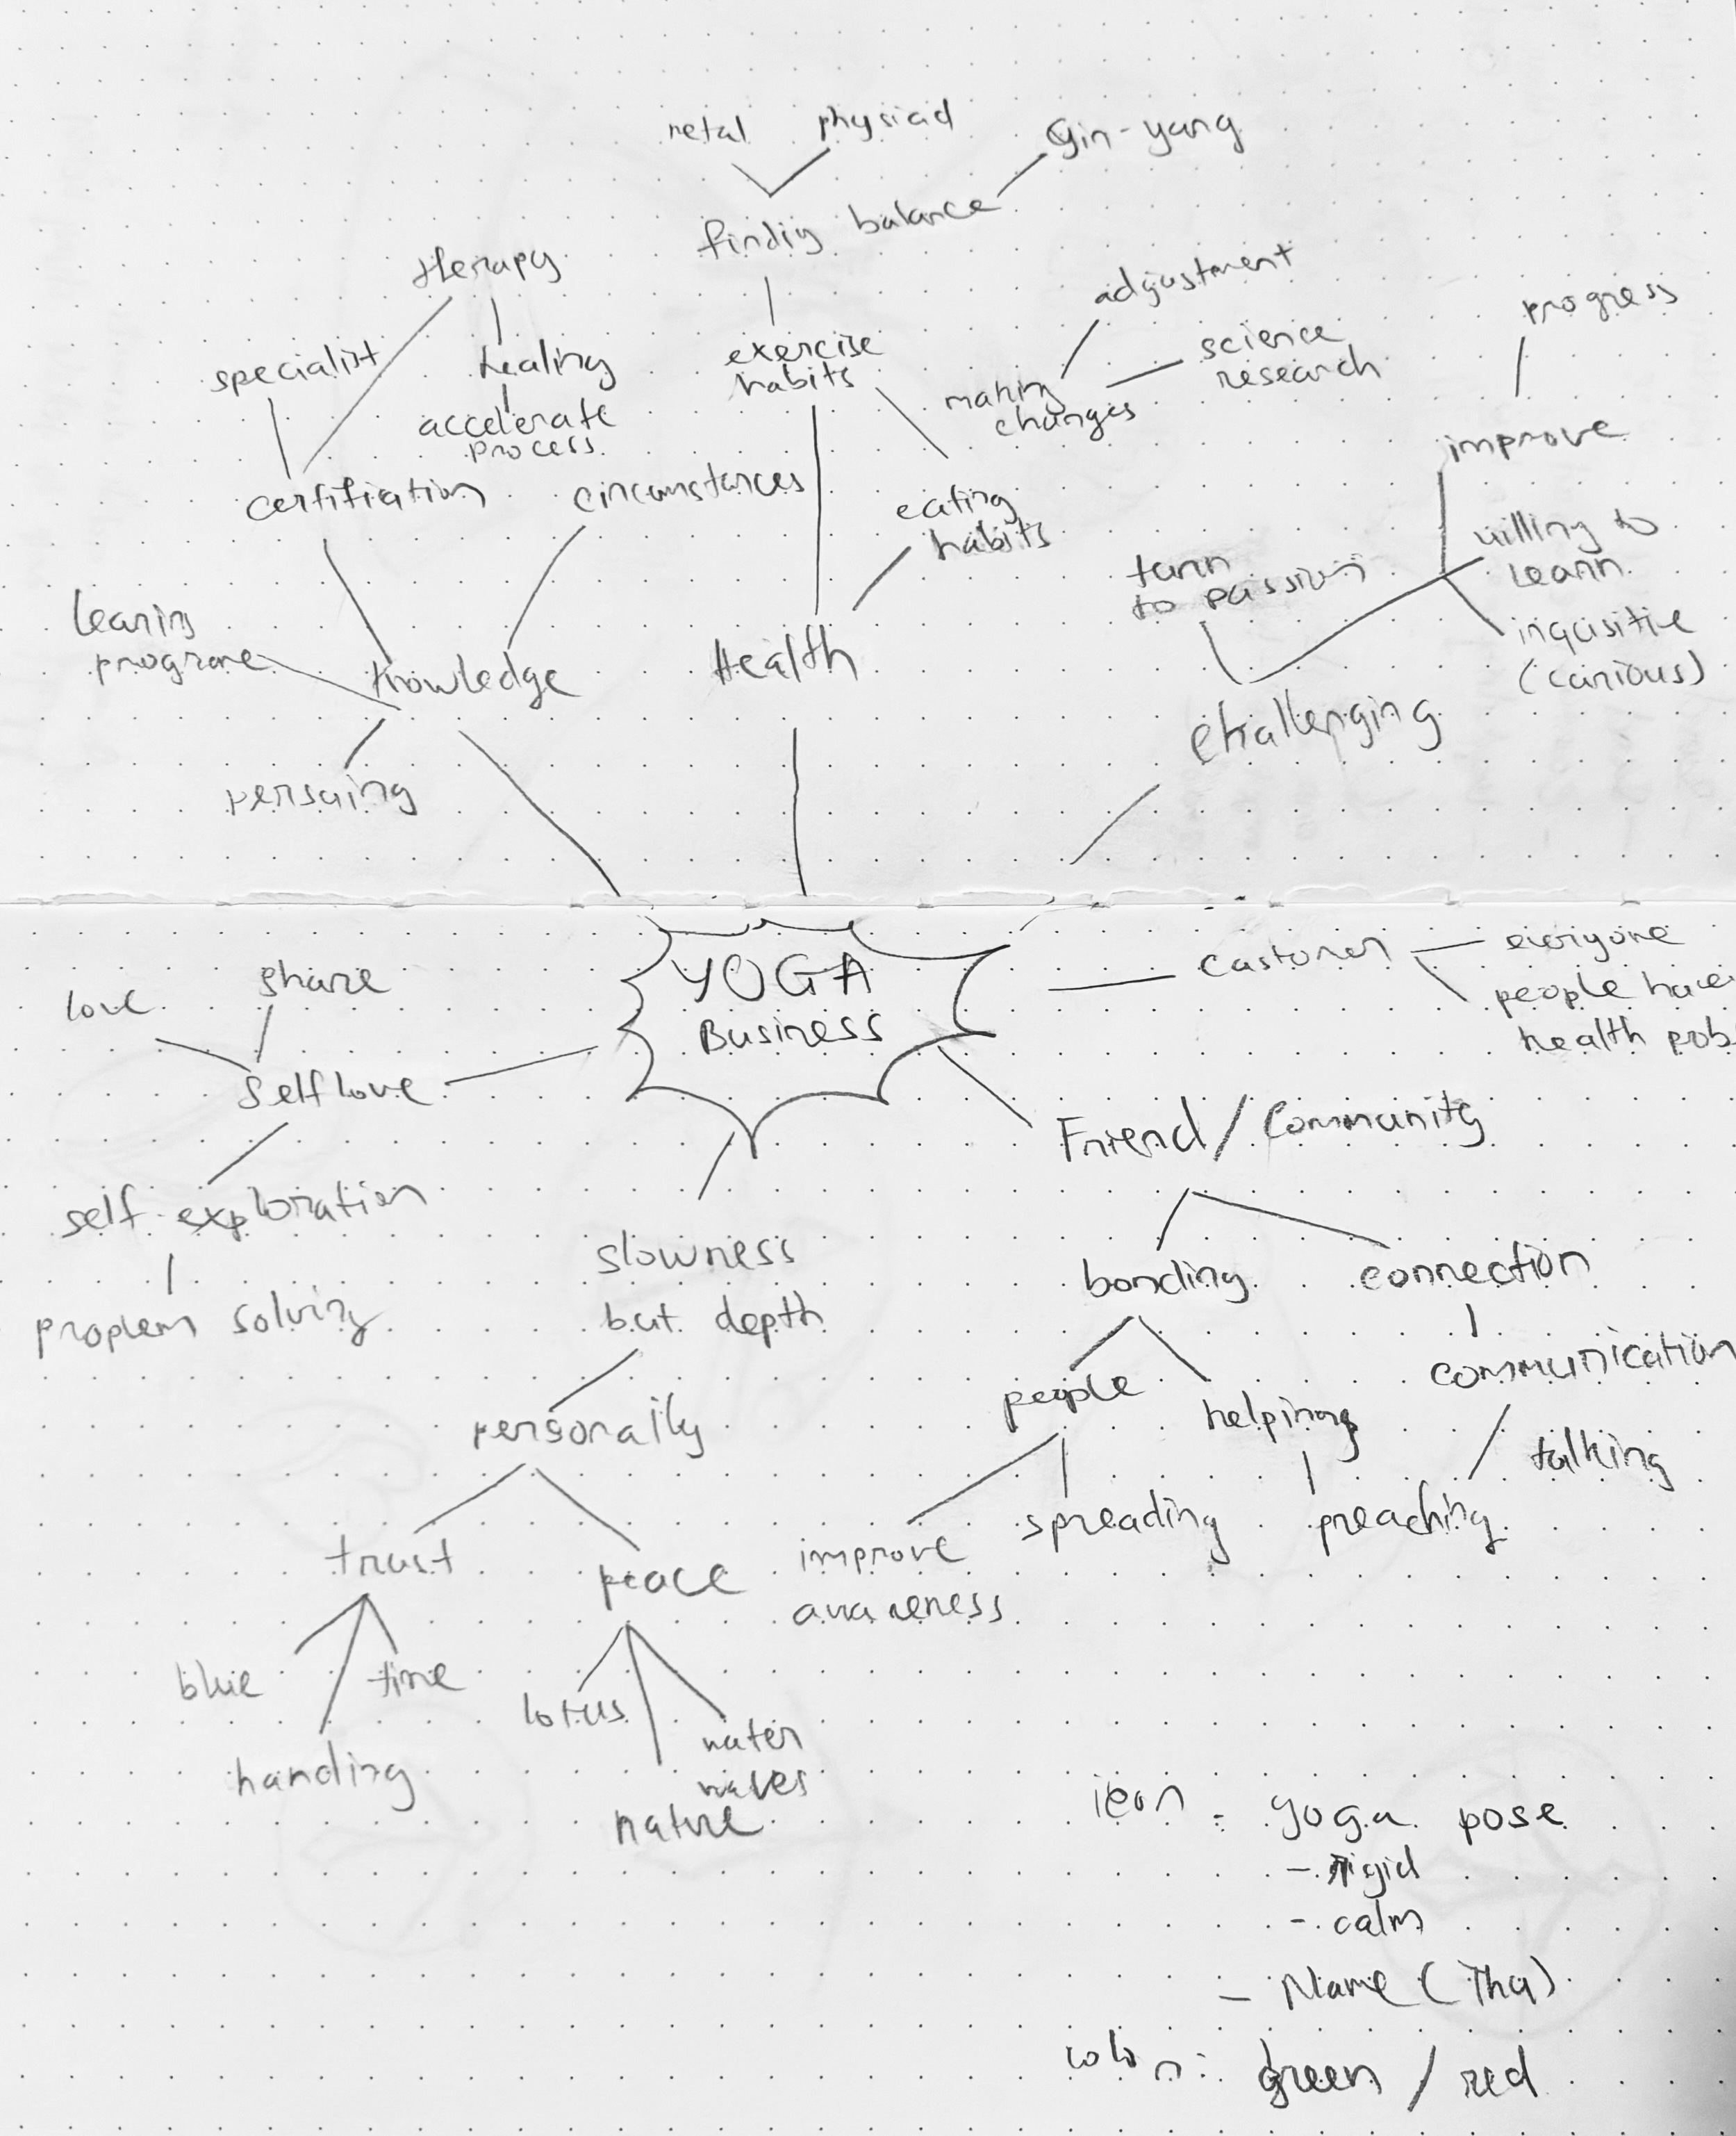 metal physical Gin-yang
findig balance
therapy
adjustment
progress
specialist
healing
exercise
habits
science
research
making
changes
accelerate
process
improve
certifiation
circumstances
eating
habits
willing to
learn
turn
to passion
learing
programe
inqusitive
(curious)
knowledge
Health
challenging
persuing
YOGA
Business
Custoner
everyone
people have
health prob
love
share
Self love
Friend / Community
self exploration
slowness
but depth
bonding
connection
proplem solving
people
helping
communication
personaily
talking
trust
peace
improve
awareness
spreading
preaching
blue
time
lotus
water
waves
handing
nature
icon : yoga pose
- rigid
- calm
- Name (Thu)
color : green / red